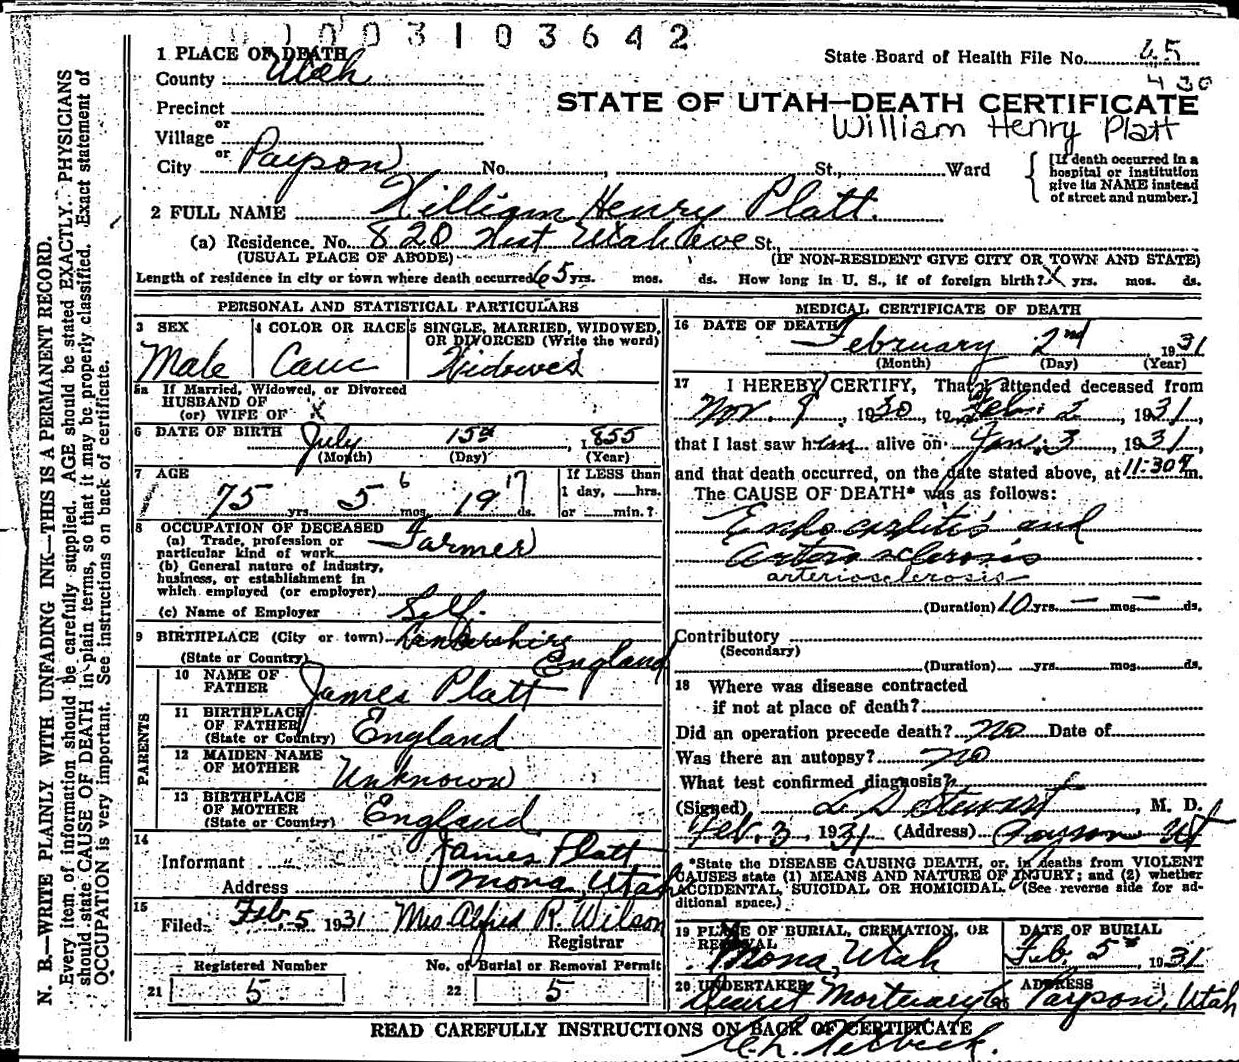 1003103642
1 PLACE OF DEATH
State Board of Health File No. 65
County Utah
430
Precinct
STATE OF UTAH—DEATH CERTIFICATE
or
Village
William Henry Platt
or
City Payson No. , St., Ward
[If death occurred in a hospital or institution give its NAME instead of street and number.]
2 FULL NAME William Henry Platt.
(a) Residence. No. 820 West Utah Ave St.,
(USUAL PLACE OF ABODE) (IF NON-RESIDENT GIVE CITY OR TOWN AND STATE)
Length of residence in city or town where death occurred 65 yrs. mos. ds. How long in U. S., if of foreign birth? X yrs. mos. ds.
PERSONAL AND STATISTICAL PARTICULARS
3 SEX
Male
4 COLOR OR RACE
Cauc
5 SINGLE, MARRIED, WIDOWED, OR DIVORCED (Write the word)
Widowed
5a If Married, Widowed, or Divorced
HUSBAND OF
(or) WIFE OF X
6 DATE OF BIRTH July 15th, 1855
(Month) (Day) (Year)
7 AGE
75 yrs. 5 6 mos. 19 17 ds.
If LESS than
1 day, hrs.
or min.?
8 OCCUPATION OF DECEASED
(a) Trade, profession or
particular kind of work Farmer
(b) General nature of industry,
business, or establishment in
which employed (or employer)
(c) Name of Employer Self.
9 BIRTHPLACE (City or town)
(State or Country) England
PARENTS
10 NAME OF
FATHER James Platt
11 BIRTHPLACE
OF FATHER
(State or Country) England
12 MAIDEN NAME
OF MOTHER Unknown
13 BIRTHPLACE
OF MOTHER
(State or Country) England
14
Informant James Platt
Address Mona, Utah
15
Filed. Feb. 5 1931 Mrs Alfred R. Wilson
Registrar
Registered Number No. of Burial or Removal Permit
21 5 22 5
MEDICAL CERTIFICATE OF DEATH
16 DATE OF DEATH
February 2nd 1931
(Month) (Day) (Year)
17 I HEREBY CERTIFY, That I attended deceased from
Nov. 9, 1930, to Feb. 2, 1931,
that I last saw him alive on Jan. 3, 1931,
and that death occurred, on the date stated above, at 11:30 m.
The CAUSE OF DEATH* was as follows:
Endocarditis and
Arterio sclerosis
arteriosclerosis
(Duration) 10 yrs. — mos. — ds.
Contributory
(Secondary)
(Duration) yrs. mos. ds.
18 Where was disease contracted
if not at place of death?
Did an operation precede death? No Date of
Was there an autopsy? No
What test confirmed diagnosis?
(Signed) L D Stewart, M. D.
Feb. 3 1931 (Address) Payson Ut
*State the DISEASE CAUSING DEATH, or, in deaths from VIOLENT
CAUSES state (1) MEANS AND NATURE OF INJURY; and (2) whether
ACCIDENTAL, SUICIDAL OR HOMICIDAL. (See reverse side for ad-
ditional space.)
19 PLACE OF BURIAL, CREMATION, OR
REMOVAL
Mona, Utah
DATE OF BURIAL
Feb. 5th, 1931
20 UNDERTAKER
Deseret Mortuary Co
ADDRESS
Payson, Utah
READ CAREFULLY INSTRUCTIONS ON BACK OF CERTIFICATE
N. B.—WRITE PLAINLY WITH UNFADING INK—THIS IS A PERMANENT RECORD.
Every item of information should be carefully supplied. AGE should be stated EXACTLY. PHYSICIANS
should state CAUSE OF DEATH in plain terms, so that it may be properly classified. Exact statement of
OCCUPATION is very important. See instructions on back of certificate.